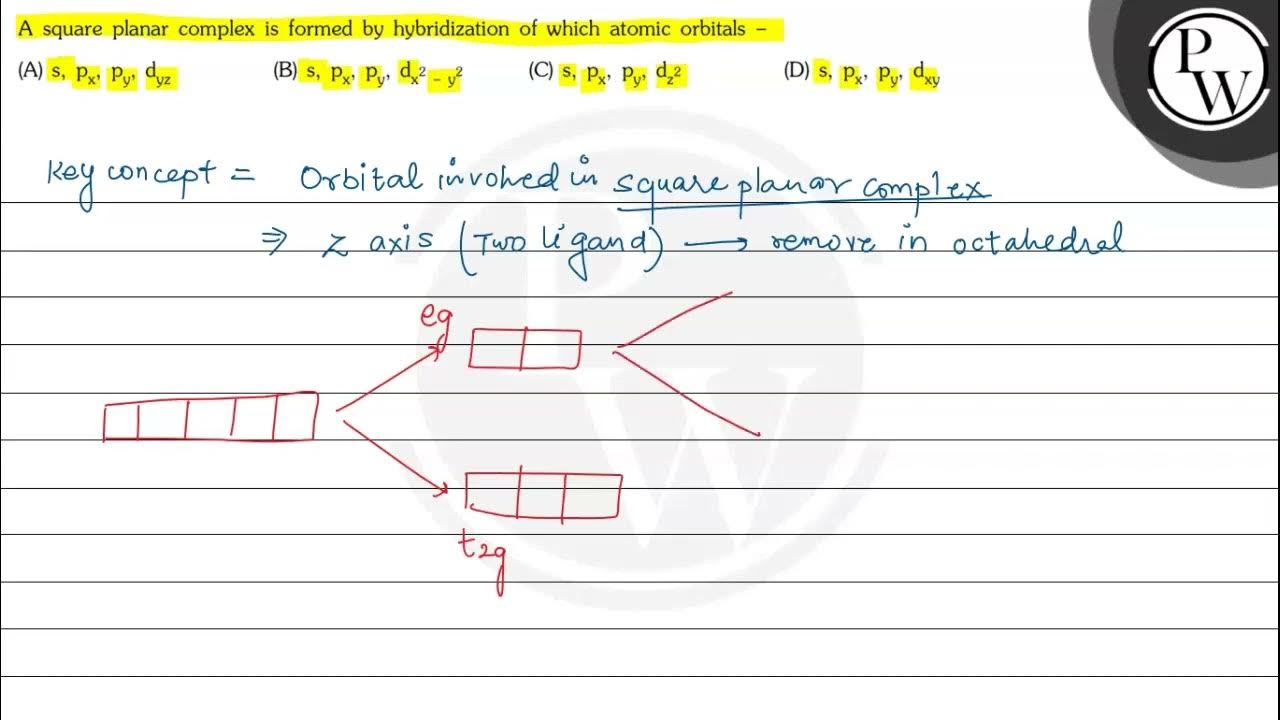 A square planar complex is formed by hybridization of which atomic orbitals –
(A) s, pₓ, p_y, d_yz (B) s, pₓ, p_y, d_x² – y² (C) s, pₓ, p_y, d_z² (D) s, pₓ, p_y, d_xy
P
W
Key concept = Orbital involved in square planar complex
⇒ Z axis (Two ligand) → remove in octahedral
eg
t2g
P
W